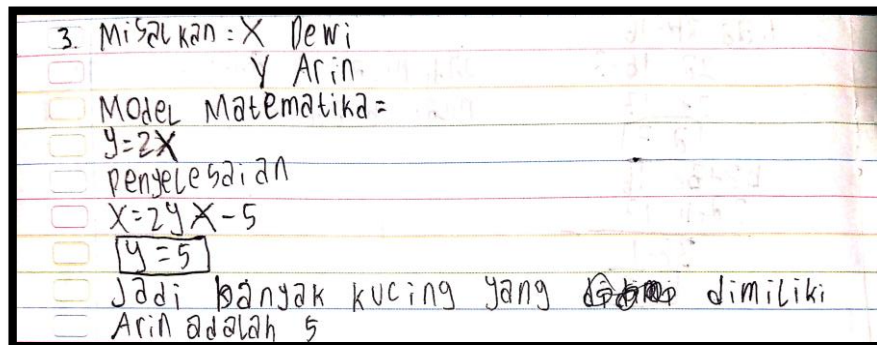 3. Misalkan = X Dewi
Y Arin
Model Matematika =
y=2x
penyelesaian
X=2y x-5
y=5
Jadi banyak kucing yang dimiliki
Arin adalah 5